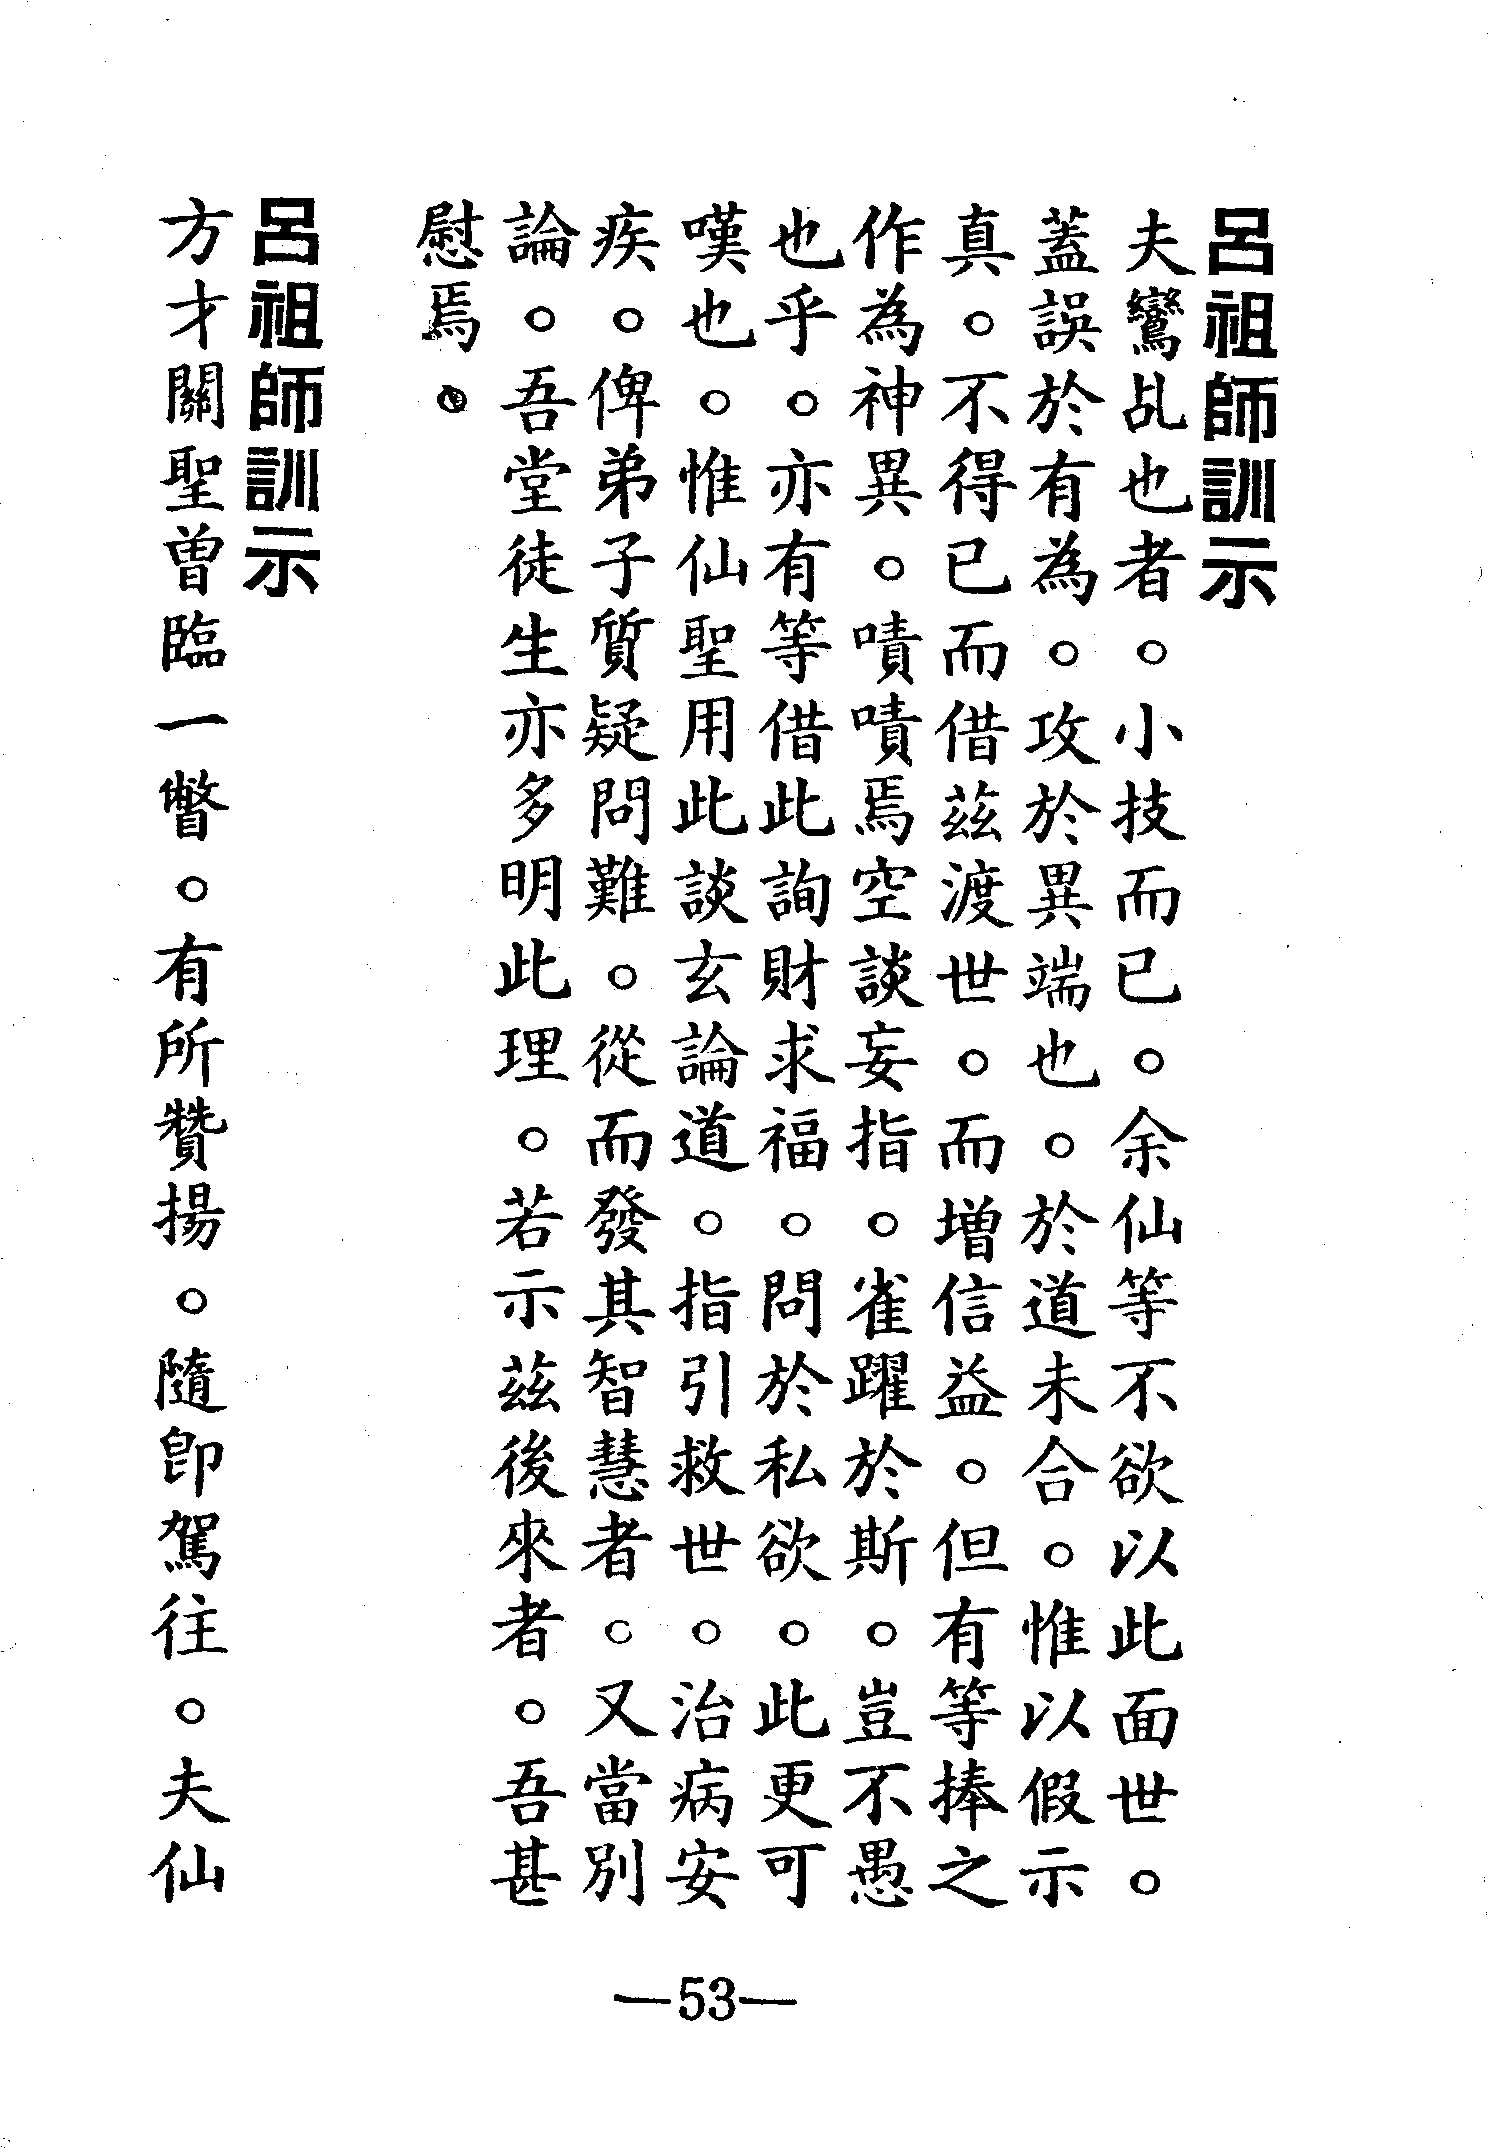 呂祖師訓示
夫鸞乩也者。小技而已。余仙等不欲以此面世。
蓋誤於有為。攻於異端也。於道未合。惟以假示
真。不得已而借茲渡世。而增信益。但有等捧之
作為神異。嘖嘖焉空談妄指。雀躍於斯。豈不愚
也乎。亦有等借此詢財求福。問於私欲。此更可
嘆也。惟仙聖用此談玄論道。指引救世。治病安
疾。俾弟子質疑問難。從而發其智慧者。又當別
論。吾堂徒生亦多明此理。若示茲後來者。吾甚
慰焉。
呂祖師訓示
方才關聖曾臨一瞥。有所贊揚。隨即駕往。夫仙
—53—